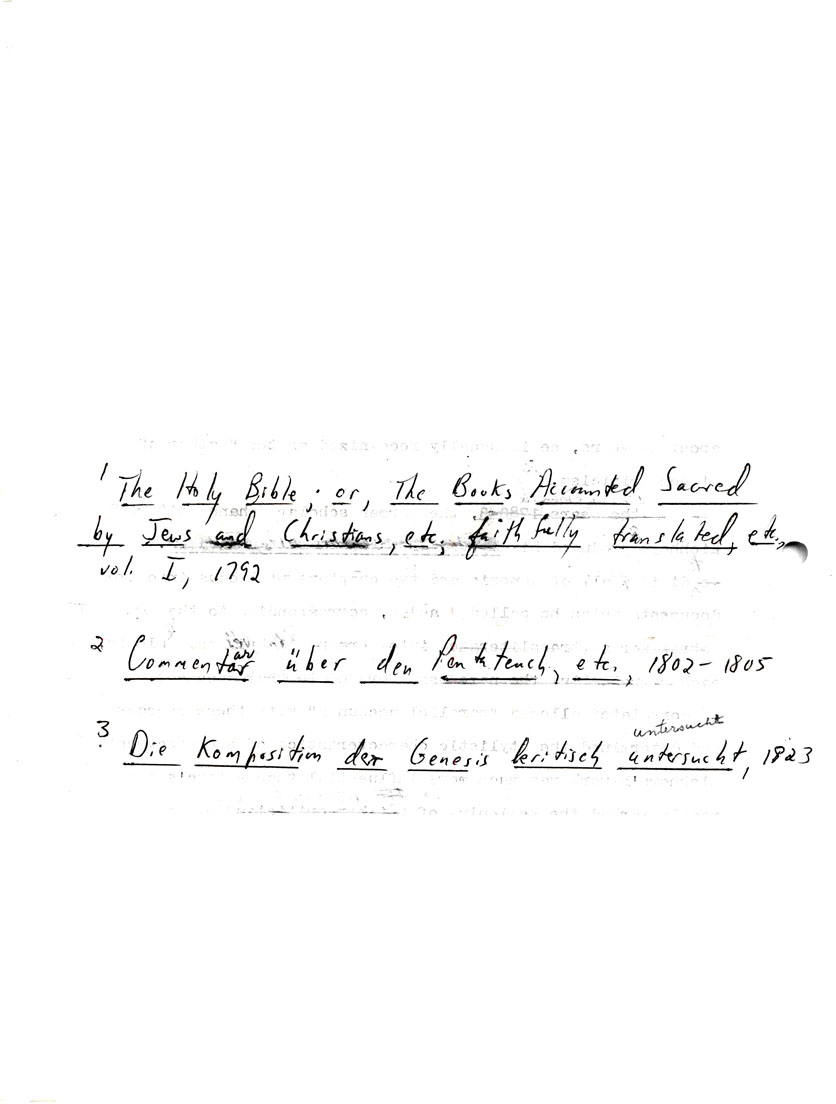 1 The Holy Bible; or, The Books Accounted Sacred
by Jews and Christians, etc, faithfully translated, etc.,
vol. I, 1792
2 Commentar über den Pentateuch, etc., 1802-1805
untersucht
3. Die Komposition der Genesis kritisch untersucht, 1823